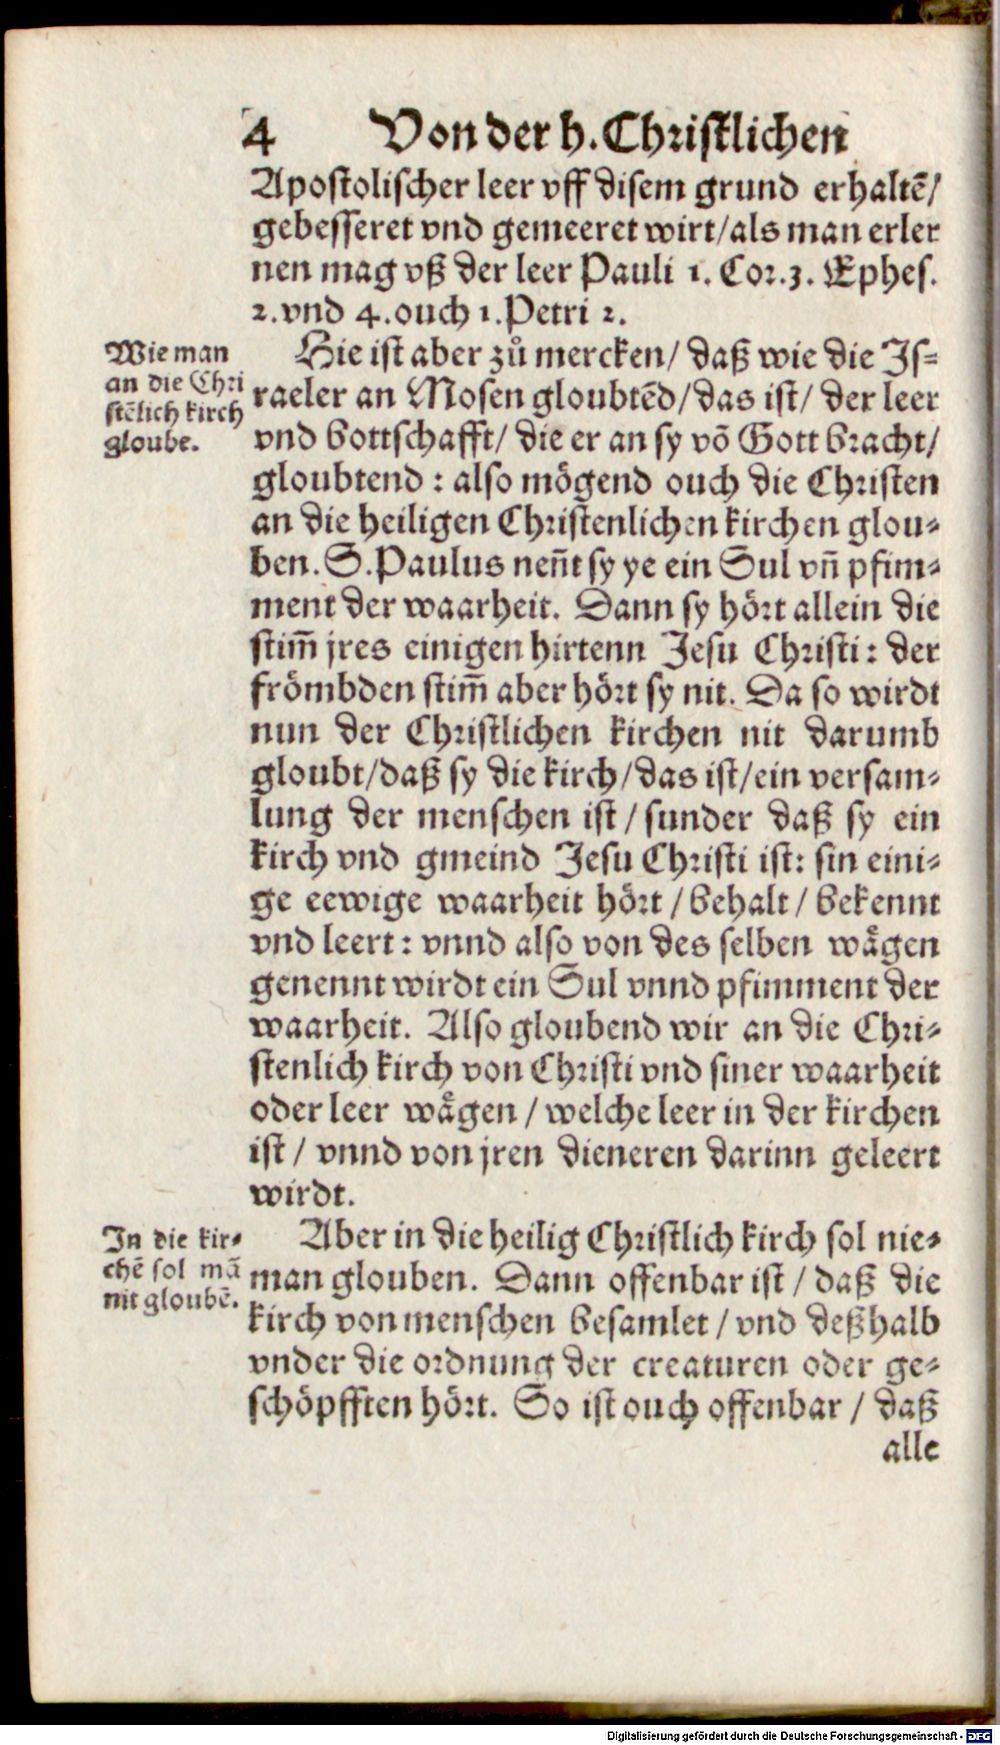 4 Von der h. Christlichen
Apostolischer leer vff disem grund erhaltē/
gebesseret vnd gemeeret wirt/als man erler
nen mag vß der leer Pauli 1. Cor.3. Ephes.
2.vnd 4.ouch 1.Petri 2.
Wie man
an die Chri
stēlich kirch
gloube.
Hie ist aber zů mercken/ daß wie die Js-
raeler an Mosen gloubtēd/das ist/ der leer
vnd bottschafft/ die er an sy vō Gott bracht/
gloubtend : also mögend ouch die Christen
an die heiligen Christenlichen kirchen glou-
ben. S.Paulus neñt sy ye ein Sul vñ pfim-
ment der waarheit. Dann sy hört allein die
stim̄ jres einigen hirtenn Jesu Christi : der
frömbden stim̄ aber hört sy nit. Da so wirdt
nun der Christlichen kirchen nit darumb
gloubt/daß sy die kirch/das ist/ein versam-
lung der menschen ist / sunder daß sy ein
kirch vnd gmeind Jesu Christi ist: sin eini-
ge eewige waarheit hört / behalt / bekennt
vnd leert : vnnd also von des selben wågen
genennt wirdt ein Sul vnnd pfimment der
waarheit. Also gloubend wir an die Chri-
stenlich kirch von Christi vnd siner waarheit
oder leer wågen / welche leer in der kirchen
ist / vnnd von jren dieneren darinn geleert
wirdt.
Jn die kir-
chē sol mā
nit gloubē.
Aber in die heilig Christlich kirch sol nie-
man glouben. Dann offenbar ist / daß die
kirch von menschen besamlet / vnd deßhalb
vnder die ordnung der creaturen oder ge-
schöpfften hört. So ist ouch offenbar / daß
alle
Digitalisierung gefördert durch die Deutsche Forschungsgemeinschaft - DFG